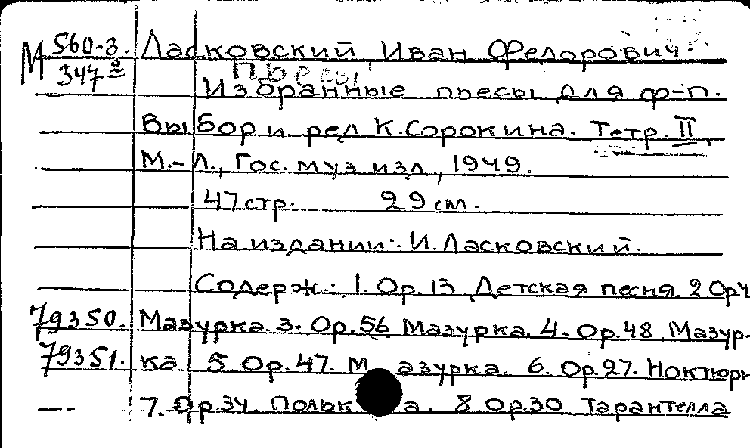 М 560-3. Ласковский, Иван Федорович.
347 2 Пьесы
Избранные пьесы для ф-п.
Выбор и ред К. Сорокина. Тетр. II
М.-Л., Гос. муз изд, 1949.
47 стр. 29 см.
На издании: И. Ласковский.
Содерж.: 1. Ор. 13 Детская песня. 2 Ор 4
79350. Мазурка 3. Ор. 56 Мазурка. 4. Ор. 48 Мазур-
79351. ка 5 Ор. 47. Мазурка. 6. Ор. 27. Ноктюрн
7. Ор 34. Полька. 8. Ор 30 Тарантелла